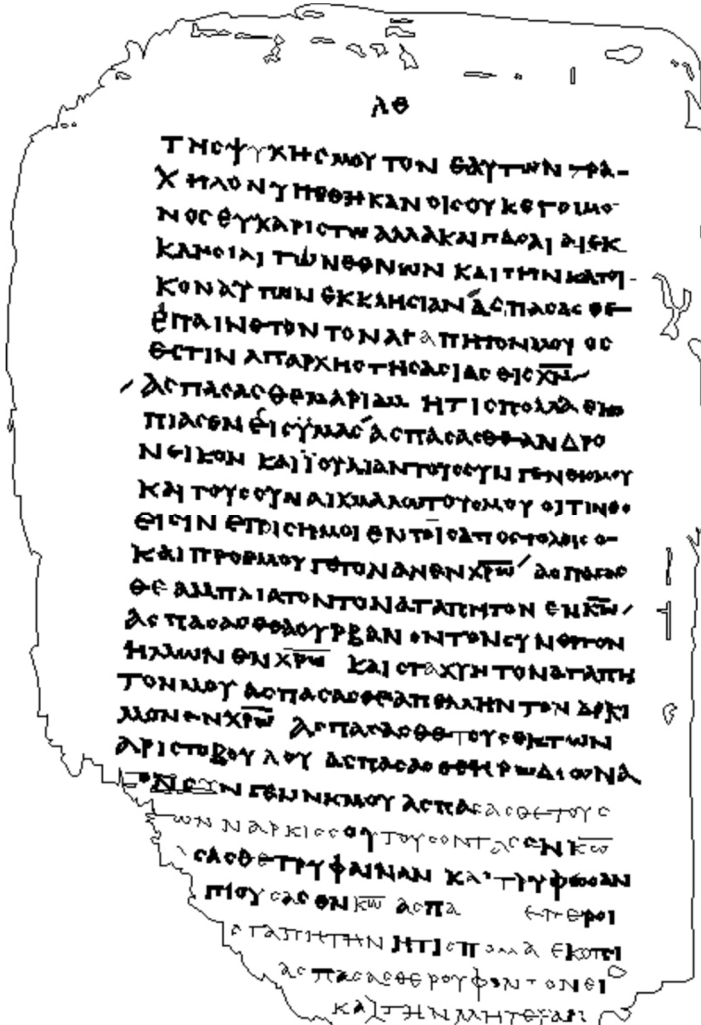 ΛΘ
ΤΗϹΨΥΧΗϹΜΟΥΤΟΝ ΕΑΥΤΩΝ ΤΡΑ-
ΧΗΛΟΝΥΠΕΘΗΚΑΝ ΟΙϹΟΥΚΕΓΟΙΜΟ
ΝΟϹΕΥΧΑΡΙϹΤΩ ΑΛΛΑΚΑΙΠΑϹΑΙ ΑΙΕΚ
ΚΛΗϹΙΑΙΤΩΝΕΘΝΩΝ ΚΑΙΤΗΝΚΑΤΟΙ-
ΚΟΝΑΥΤΩΝΕΚΚΛΗϹΙΑΝ ΑϹΠΑϹΑϹΘΕ
ΕΠΑΙΝΕΤΟΝΤΟΝΑΓΑΠΗΤΟΝΜΟΥ ΟϹ
ΕϹΤΙΝ ΑΠΑΡΧΗϹΤΗϹΑϹΙΑϹΕΙϹΧ̅Ν̅
ΑϹΠΑϹΑϹΘΕΜΑΡΙΑΜ ΗΤΙϹΠΟΛΛΑΕΚΟ
ΠΙΑϹΕΝΕΙϹΫΜΑϹ ΑϹΠΑϹΑϹΘΕΑΝΔΡΟ
ΝΕΙΚΟΝ ΚΑΙΪΟΥΛΙΑΝΤΟΥϹϹΥΝΓΕΝΕΙϹΜΟΥ
ΚΑΙΤΟΥϹϹΥΝΑΙΧΜΑΛΩΤΟΥϹΜΟΥ ΟΙΤΙΝΕϹ
ΕΙϹΙΝ ΕΠΙϹΗΜΟΙΕΝΤΟΙϹΑΠΟϹΤΟΛΟΙϹΟϹ
ΚΑΙΠΡΟΕΜΟΥΓΕΓΟΝΑΝΕΝΧ̅Ρ̅Ω̅ ΑϹΠΑϹΑϹ
ΘΕ ΑΜΠΛΙΑΤΟΝΤΟΝΑΓΑΠΗΤΟΝ ΕΝΚ̅Ω̅
ΑϹΠΑϹΑϹΘΕΟΥΡΒΑΝΟΝΤΟΝϹΥΝΕΡΓΟΝ
ΗΜΩΝ ΕΝΧ̅Ρ̅Ω̅ ΚΑΙϹΤΑΧΥΝΤΟΝΑΓΑΠΗ
ΤΟΝΜΟΥ ΑϹΠΑϹΑϹΘΕΑΠΕΛΛΗΝΤΟΝ ΔΟΚΙ
ΜΟΝΕΝΧ̅Ρ̅Ω̅ ΑϹΠΑϹΑϹΘΕΤΟΥϹΕΚΤΩΝ
ΑΡΙϹΤΟΒΟΥΛΟΥ ΑϹΠΑϹΑϹΘΕΗΡΩΔΙΩΝΑ
ΤΟΝϹΥΝΓΕΝΝΗΜΟΥ ΑϹΠΑϹΑϹΘΕΤΟΥϹ
ΤΩΝ ΝΑΡΚΙϹϹΟΥΤΟΥϹΟΝΤΑϹΕΝΚ̅Ω̅
ϹΑϹΘΕΤΡΥΦΑΙΝΑΝ ΚΑΙΤΡΥΦΩϹΑΝ
ΠΙΟΥϹΑϹΕΝΚ̅Ω̅ ΑϹΠΑ ΕΠΕΡΟΙ
ϹΤΑΠΗΤΗΝ ΗΤΙϹΠΟΛΛΑ ΕΚΟΠΙ
ΑϹΠΑϹΑϹΘΕΡΟΥΦΟΝΤΟΝΕΙ
ΚΑΙΤΗΝΜΗΤΕΡΑΑΥ